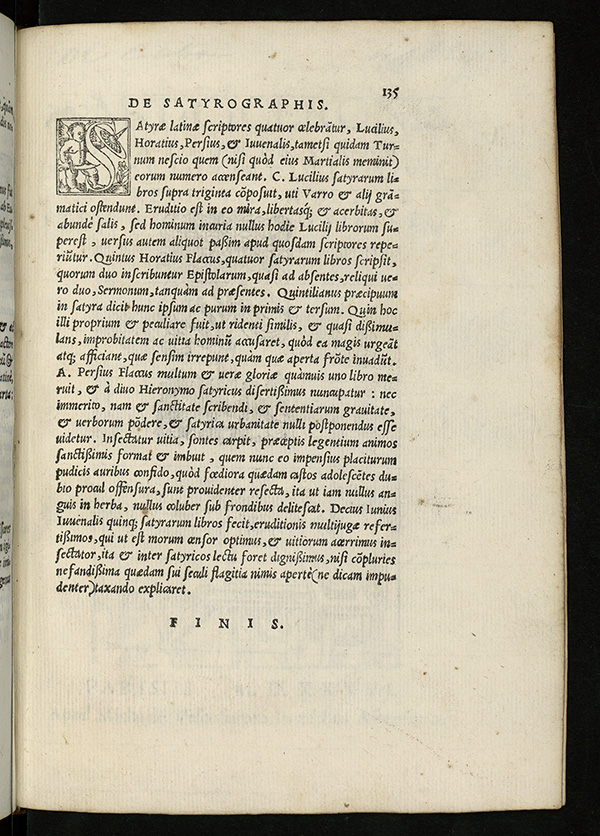 135
DE SATYROGRAPHIS.
SAtyræ latinæ scriptores quatuor celebrãtur, Lucilius,
Horatius, Persius, & Iuuenalis, tametsi quidam Tur-
num nescio quem (nisi quòd eius Martialis meminit)
eorum numero accenseant. C. Lucilius satyrarum li-
bros supra triginta cõposuit, uti Varro & alij grã-
matici ostendunt. Eruditio est in eo mira, libertasq; & acerbitas, &
abundè salis, sed hominum incuria nullus hodie Lucilij librorum su-
perest, uersus autem aliquot paßim apud quosdam scriptores repe-
riũtur. Quintus Horatius Flaccus, quatuor satyrarum libros scripsit,
quorum duo inscribuntur Epistolarum, quasi ad absentes, reliqui ue-
ro duo, Sermonum, tanquàm ad præsentes. Quintilianus præcipuum
in satyra dicit hunc ipsum ac purum in primis & tersum. Quin hoc
illi proprium & peculiare fuit, ut ridenti similis, & quasi dißimu-
lans, improbitatem ac uitia hominũ accusaret, quòd ea magis urgeãt
atq; afficiant, quæ sensim irrepunt, quàm quæ aperta frõte inuadũt.
A. Persius Flaccus multum & ueræ gloriæ quamuis uno libro me-
ruit, & à diuo Hieronymo satyricus disertißimus nuncupatur : nec
immerito, nam & sanctitate scribendi, & sententiarum grauitate,
& uerborum põdere, & satyrica urbanitate nulli postponendus esse
uidetur. Insectatur uitia, sontes carpit, præceptis legentium animos
sanctißimis format & imbuit, quem nunc eo impensius placiturum
pudicis auribus confido, quòd fœdiora quædam castos adolescẽtes du-
bio procul offensura, sunt prouidenter resecta, ita ut iam nullus an-
guis in herba, nullus coluber sub frondibus delitescat. Decius Iunius
Iuuenalis quinq; satyrarum libros fecit, eruditionis multijugæ refer-
tißimos, qui ut est morum censor optimus, & uitiorum acerrimus in-
sectator, ita & inter satyricos lectu foret dignißimus, nisi cõpluries
nefandißima quædam sui seculi flagitia nimis apertè (ne dicam impu-
denter) taxando explicaret.
FINIS.